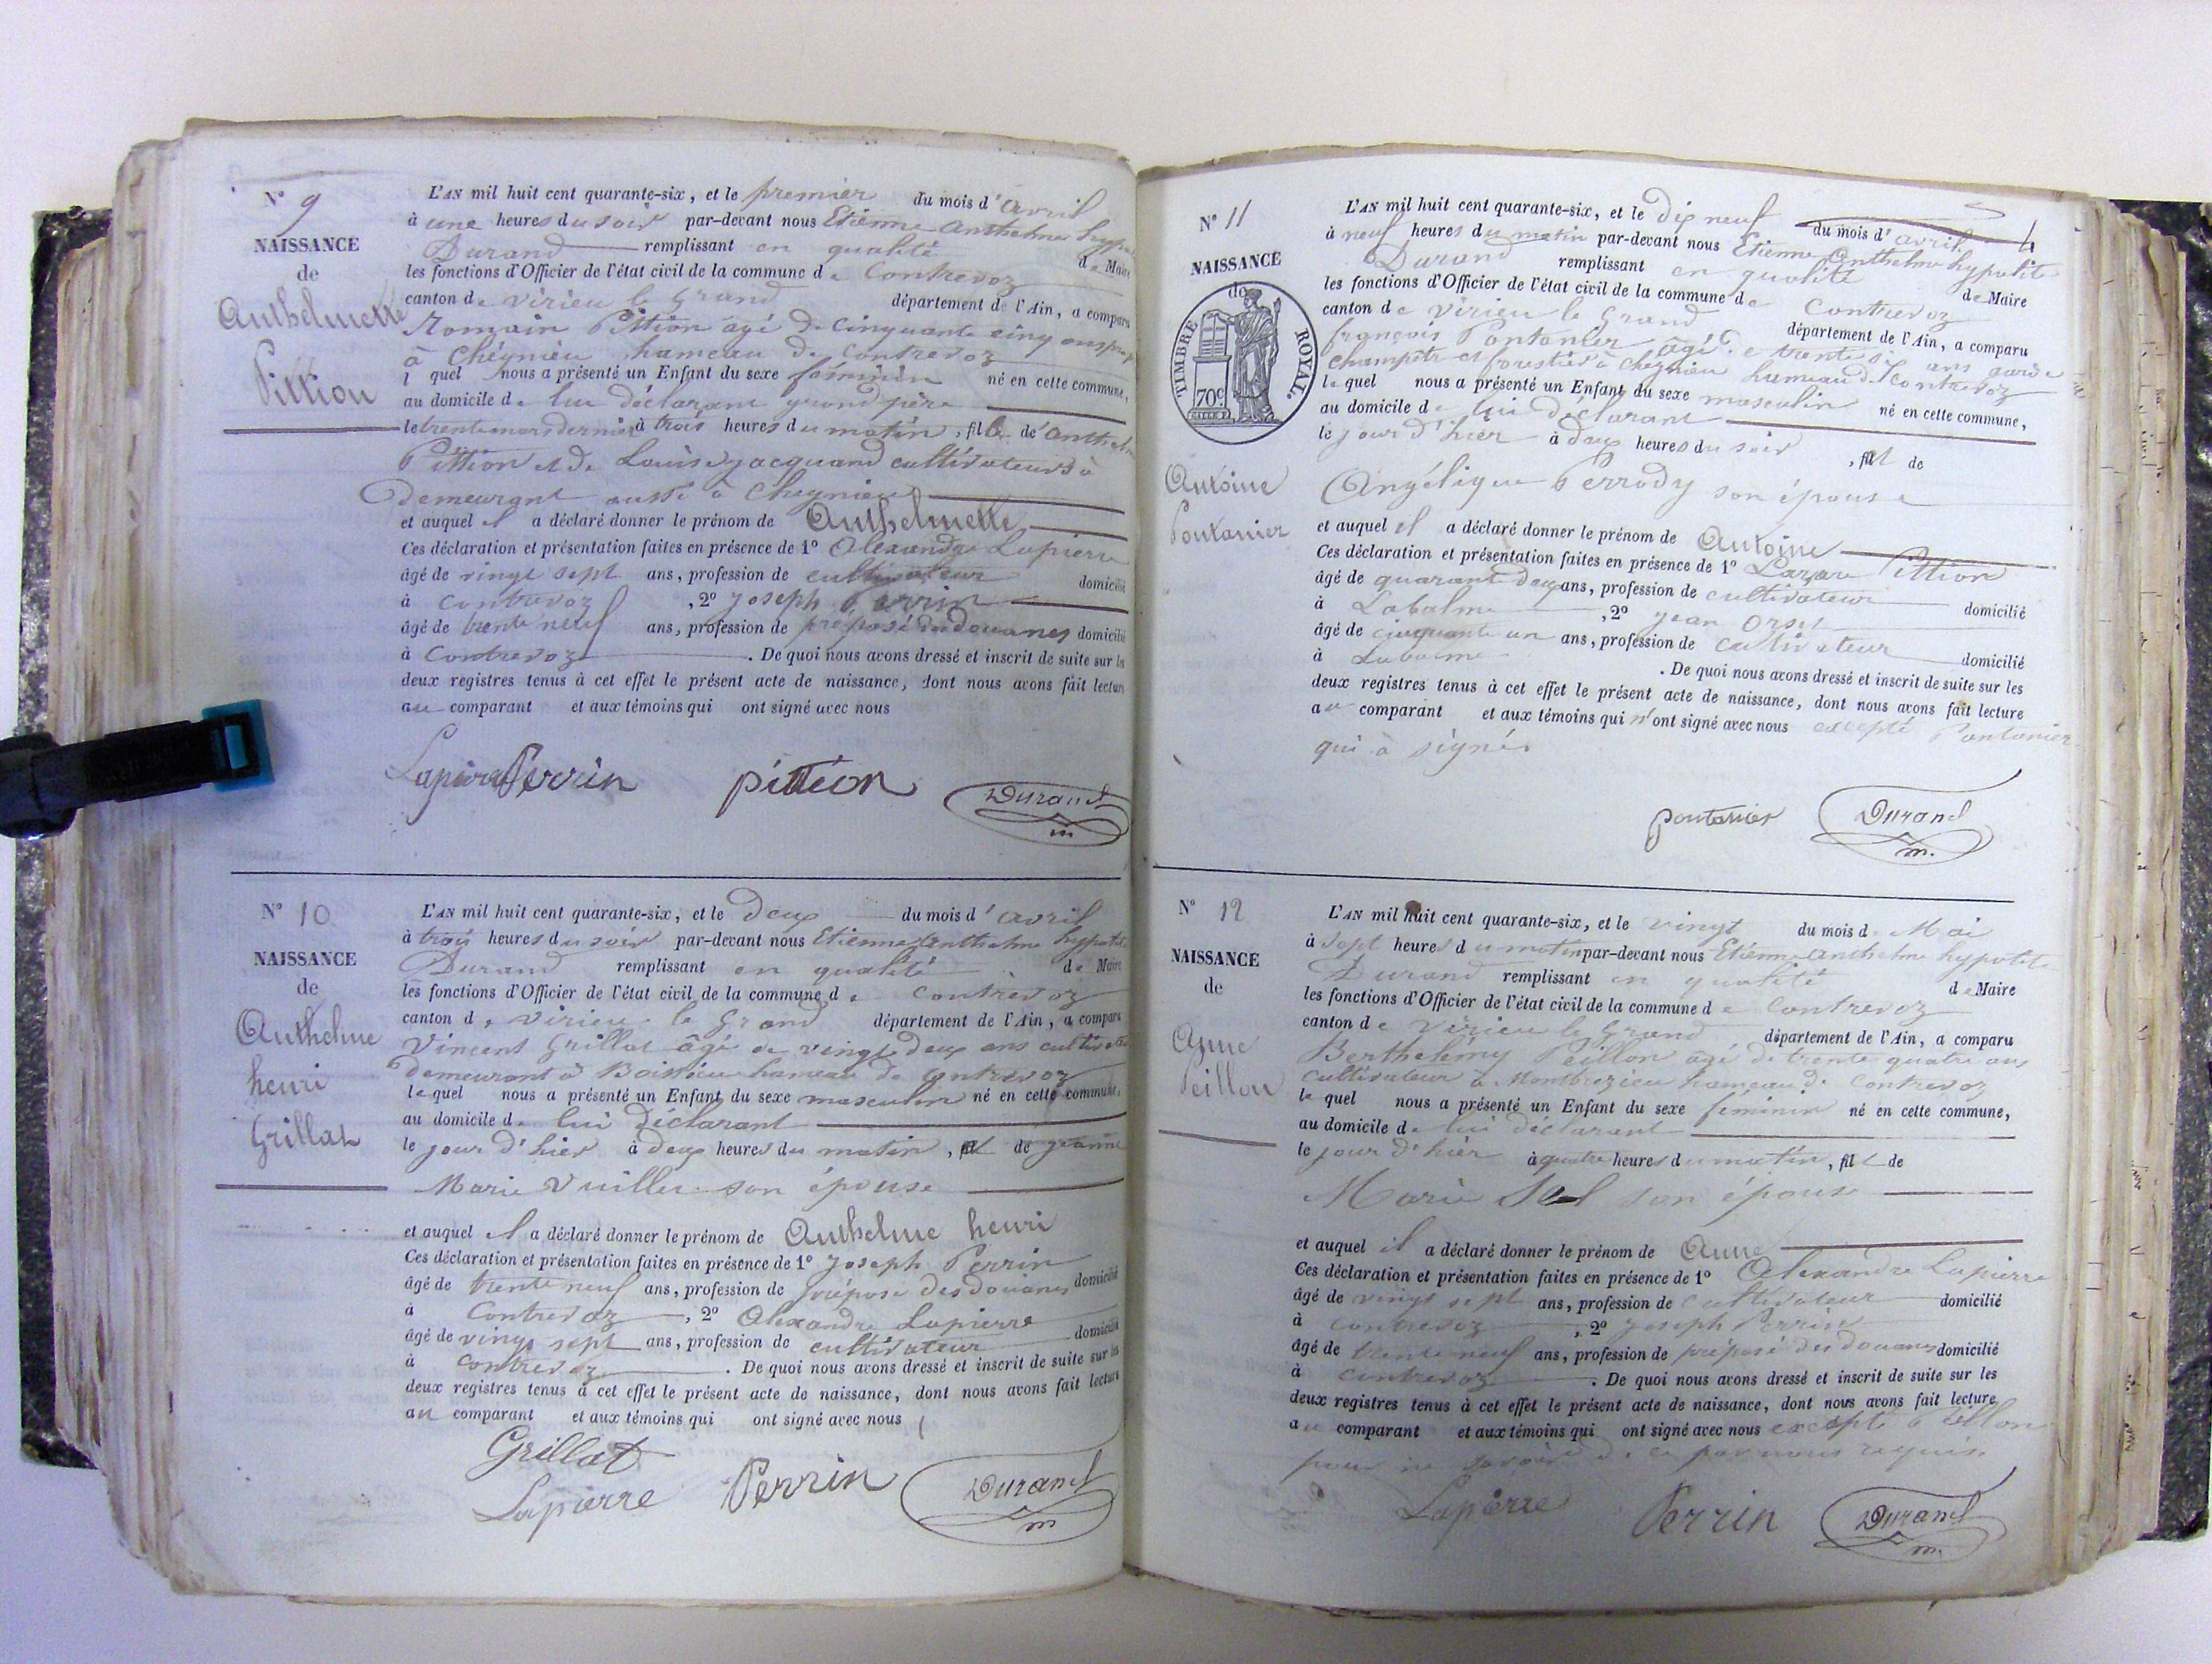 N° 9
NAISSANCE
de
Anthelmette
Pittion
L'AN mil huit cent quarante-six, et le premier du mois d'avril
à une heures du soir par-devant nous Etienne Anthelme
Durand remplissant en qualité de Maire
les fonctions d'Officier de l'état civil de la commune de Contrevoz
canton de virieu le Grand département de l'Ain, a comparu
Romain Pittion âgé de cinquante cinq ans
à Cheignieu hameau de Contrevoz
l quel nous a présenté un Enfant du sexe féminin né en cette commune,
au domicile de lui déclarant grand père
le trente mars dernier à trois heures du matin, fille de
Pittion et de Louise jacquand cultivateurs à
demeurant aussi à Cheignieu
et auquel il a déclaré donner le prénom de Anthelmette
Ces déclaration et présentation faites en présence de 1° Alexandre Lapierre
âgé de vingt sept ans, profession de cultivateur domicilié
à Contrevoz, 2° Joseph Perrin
âgé de trente neuf ans, profession de préposé des douanes domicilié
à Contrevoz. De quoi nous avons dressé et inscrit de suite sur les
deux registres tenus à cet effet le présent acte de naissance, dont nous avons fait lecture
au comparant et aux témoins qui ont signé avec nous
Lapierre Perrin pittion Durand
m
N° 10
NAISSANCE
de
Anthelme
henri
Grillat
L'AN mil huit cent quarante-six, et le deux du mois d'avril
à trois heures du soir par-devant nous Etienne Anthelme hypolite
Durand remplissant en qualité de Maire
les fonctions d'Officier de l'état civil de la commune de Contrevoz
canton de virieu le Grand département de l'Ain, a comparu
Vincent Grillat âgé de vingt deux ans cultivateur
demeurant à Boissieu hameau de Contrevoz
lequel nous a présenté un Enfant du sexe masculin né en cette commune,
au domicile de lui déclarant
le jour d'hier à deux heures du matin, fil de jeanne
Marie Vuillier son épouse
et auquel il a déclaré donner le prénom de Anthelme henri
Ces déclaration et présentation faites en présence de 1° Joseph Perrin
âgé de trente neuf ans, profession de préposé des douanes domicilié
à Contrevoz, 2° Alexandre Lapierre
âgé de vingt sept ans, profession de cultivateur domicilié
à Contrevoz. De quoi nous avons dressé et inscrit de suite sur les
deux registres tenus à cet effet le présent acte de naissance, dont nous avons fait lecture
au comparant et aux témoins qui ont signé avec nous
Grillat
Lapierre Perrin Durand
m
N° 11
NAISSANCE
de
TIMBRE ROYAL.
70c
Antoine
Pontanier
L'AN mil huit cent quarante-six, et le dix neuf du mois d'avril
à neuf heures du matin par-devant nous Etienne Anthelme hypolite
Durand remplissant en qualité de Maire
les fonctions d'Officier de l'état civil de la commune de Contrevoz
canton de virieu le Grand département de l'Ain, a comparu
françois Pontanier âgé de trente six ans garde
champêtre et forestier à Cheignieu hameau de Contrevoz
lequel nous a présenté un Enfant du sexe masculin né en cette commune,
au domicile de lui déclarant
le jour d'hier à deux heures du soir, fil de
Angélique Perrody son épouse
et auquel il a déclaré donner le prénom de Antoine
Ces déclaration et présentation faites en présence de 1° Lazare Pittion
âgé de quarante deux ans, profession de cultivateur domicilié
à Labalme, 2° jean Orset
âgé de cinquante un ans, profession de cultivateur domicilié
à Labalme. De quoi nous avons dressé et inscrit de suite sur les
deux registres tenus à cet effet le présent acte de naissance, dont nous avons fait lecture
au comparant et aux témoins qui n'ont signé avec nous excepté Pontanier
qui à signé.
pontanier Durand
m.
N° 12
NAISSANCE
de
Anne
Peillon
L'AN mil huit cent quarante-six, et le vingt du mois de Mai
à sept heures du matin par-devant nous Etienne Anthelme hypolite
Durand remplissant en qualité de Maire
les fonctions d'Officier de l'état civil de la commune de Contrevoz
canton de Virieu le Grand département de l'Ain, a comparu
Berthelémy Peillon âgé de trente quatre ans
cultivateur à Montbrezieu hameau de Contrevoz
le quel nous a présenté un Enfant du sexe féminin né en cette commune,
au domicile de lui déclarant
le jour d'hier à quatre heures du matin, fil de
Marie son épouse
et auquel il a déclaré donner le prénom de Anne
Ces déclaration et présentation faites en présence de 1° Alexandre Lapierre
âgé de vingt sept ans, profession de cultivateur domicilié
à Contrevoz, 2° Joseph Perrin
âgé de trente neuf ans, profession de préposé des douanes domicilié
à Contrevoz. De quoi nous avons dressé et inscrit de suite sur les
deux registres tenus à cet effet le présent acte de naissance, dont nous avons fait lecture
au comparant et aux témoins qui ont signé avec nous excepté Peillon
pour ne savoir de ce par nous requis.
Lapierre Perrin Durand
m.